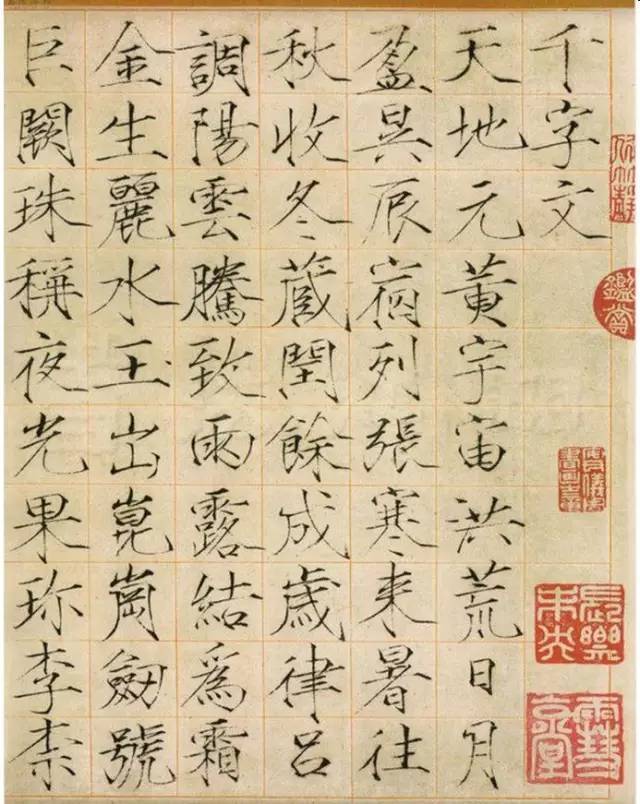 千字文
天地元黃宇宙洪荒日月
盈昃辰宿列張寒来暑往
秋收冬蔵閏餘成歲律呂
調陽雲騰致雨露結爲霜
金生麗水玉出崑崗劒號
巨闕珠稱夜光果珎李柰
鑑賞